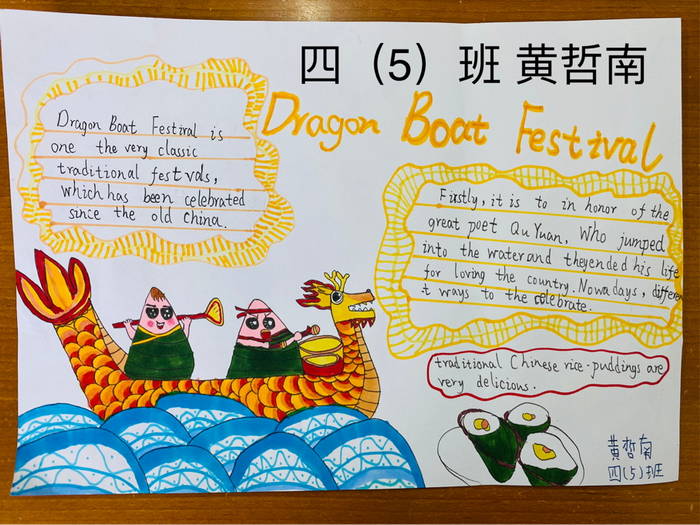 四（5）班 黄哲南
Dragon Boat Festival
Dragon Boat Festival is
one the very classic
traditional festvals,
which has been celebrated
since the old China.
Firstly, it is to in honor of the
great poet Qu Yuan, Who jumped
into the water and they ended his life
for loving the country. Nowadays, differen
t ways to the celebrate.
traditional Chinese rice-puddings are
very delicious.
黄哲南
四(5)班